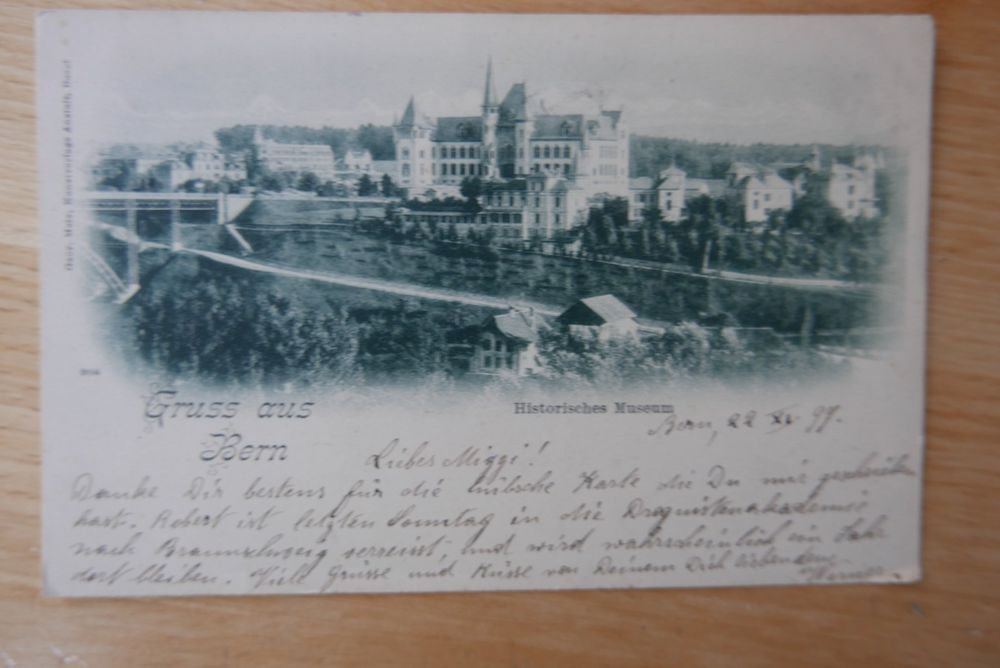 Gruss aus
Bern
Historisches Museum
Bern, 22 XI 97.
Liebes Miggi!
Danke Dir bestens für die hübsche Karte die Du mir geschrieben
hast. Robert ist letzten Sonntag in die Drogistenakademie
nach Braunschweig verreist, und wird wahrscheinlich ein Jahr
dort bleiben. Viele Grüsse und Küsse von Deinem Dich liebenden
Werner